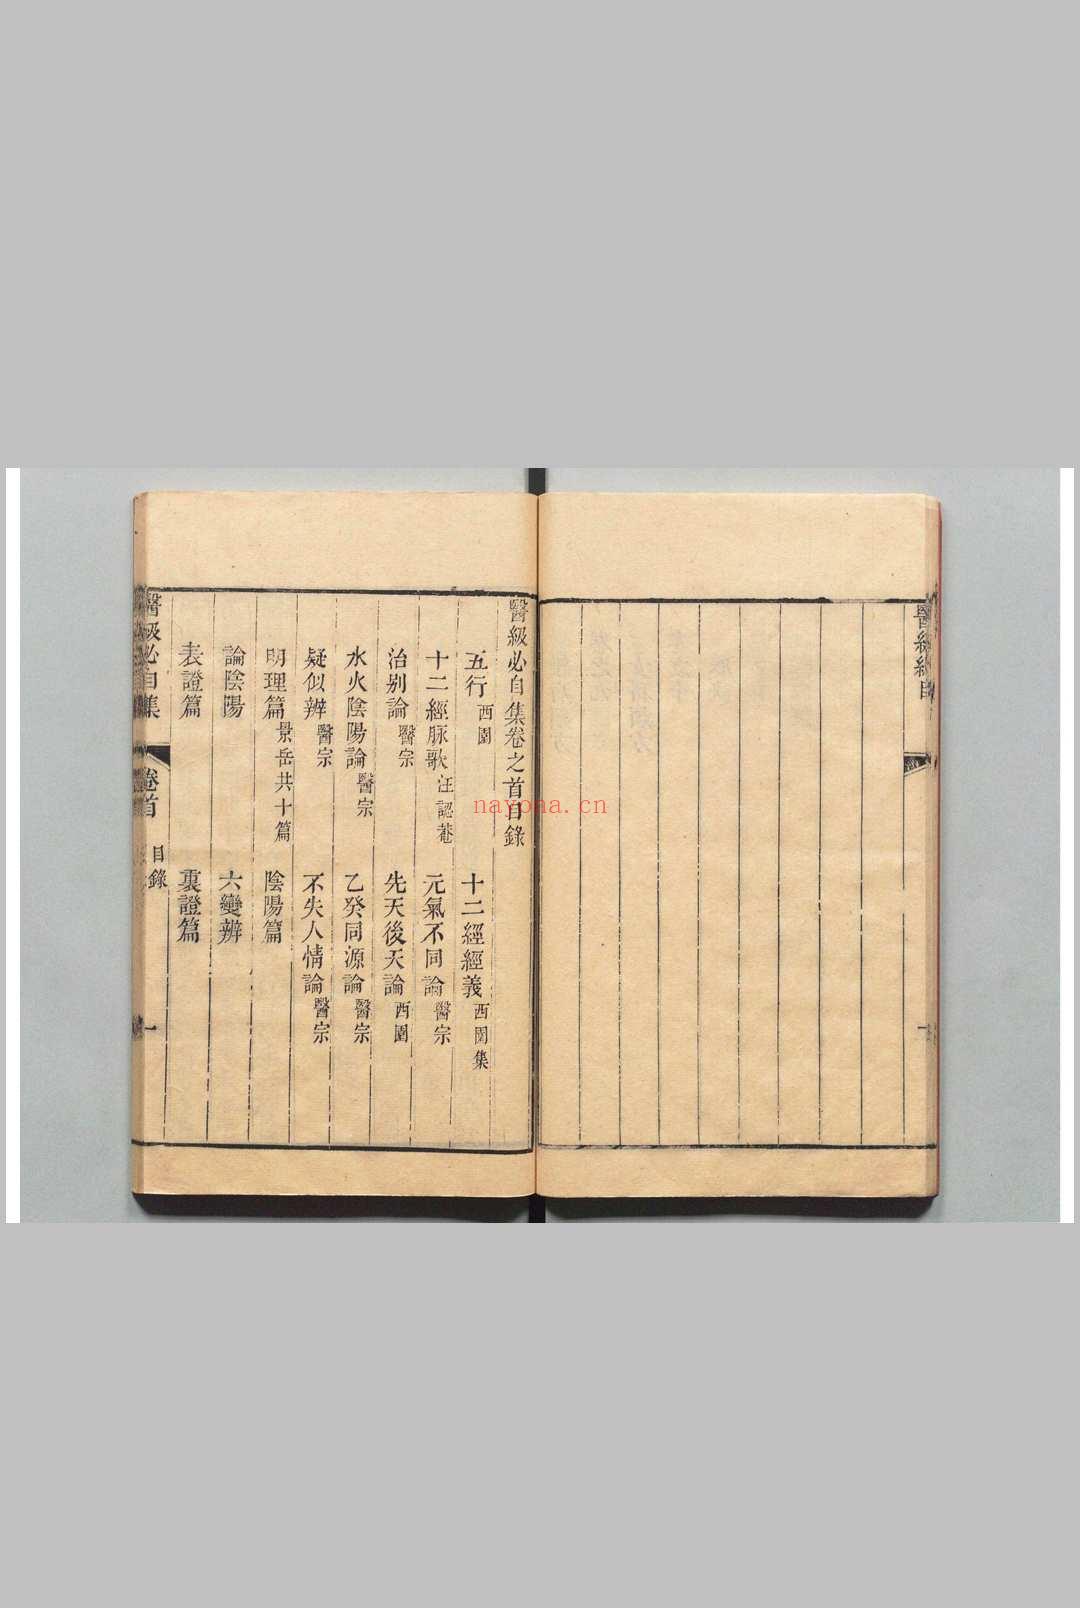 醫級總目
醫級必自集卷之首目錄
五行 西園
十二經經義 西園集
十二經脉歌 汪認菴
元氣不同論 醫宗
治别論 醫宗
先天後天論 西園
水火陰陽論 醫宗
乙癸同源論 醫宗
疑似辨 醫宗
不失人情論 醫宗
明理篇 景岳共十篇
陰陽篇
論陰陽
六變辨
表證篇
裏證篇
醫級必自集
卷首
目錄
一
nayona.cn